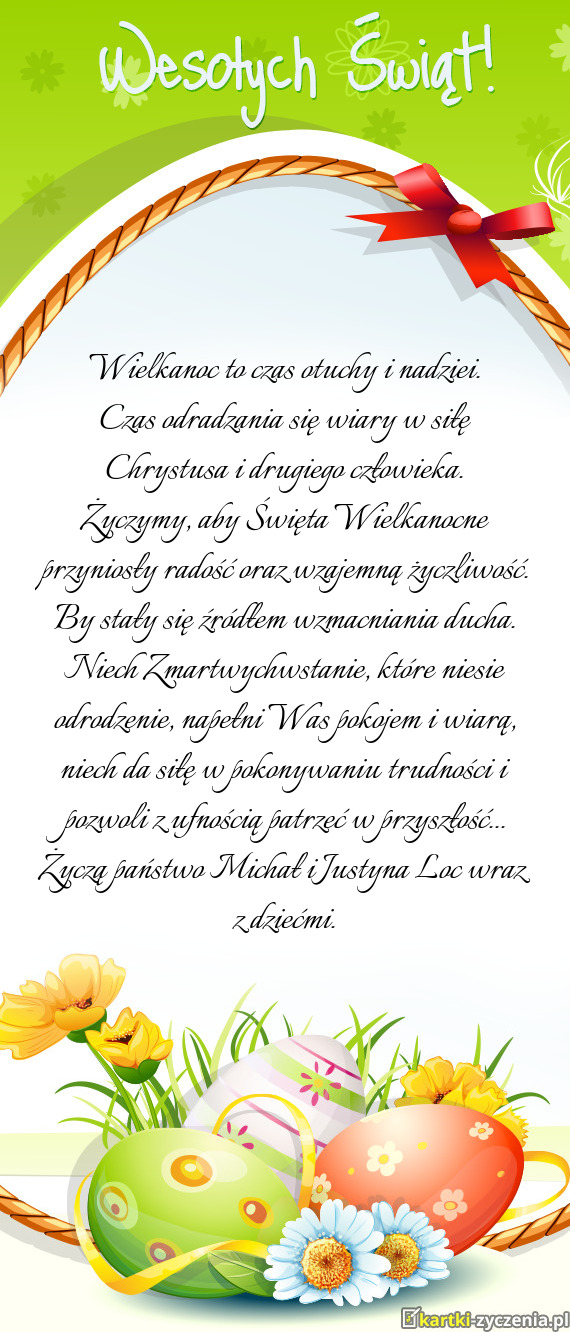 Wesołych Świąt!
Wielkanoc to czas otuchy i nadziei.
Czas odradzania się wiary w siłę
Chrystusa i drugiego człowieka.
Życzymy, aby Święta Wielkanocne
przyniosły radość oraz wzajemną życzliwość.
By stały się źródłem wzmacniania ducha.
Niech Zmartwychwstanie, które niesie
odrodzenie, napełni Was pokojem i wiarą,
niech da siłę w pokonywaniu trudności i
pozwoli z ufnością patrzeć w przyszłość...
Życzą państwo Michał i Justyna Loc wraz
z dziećmi.
kartki-zyczenia.pl